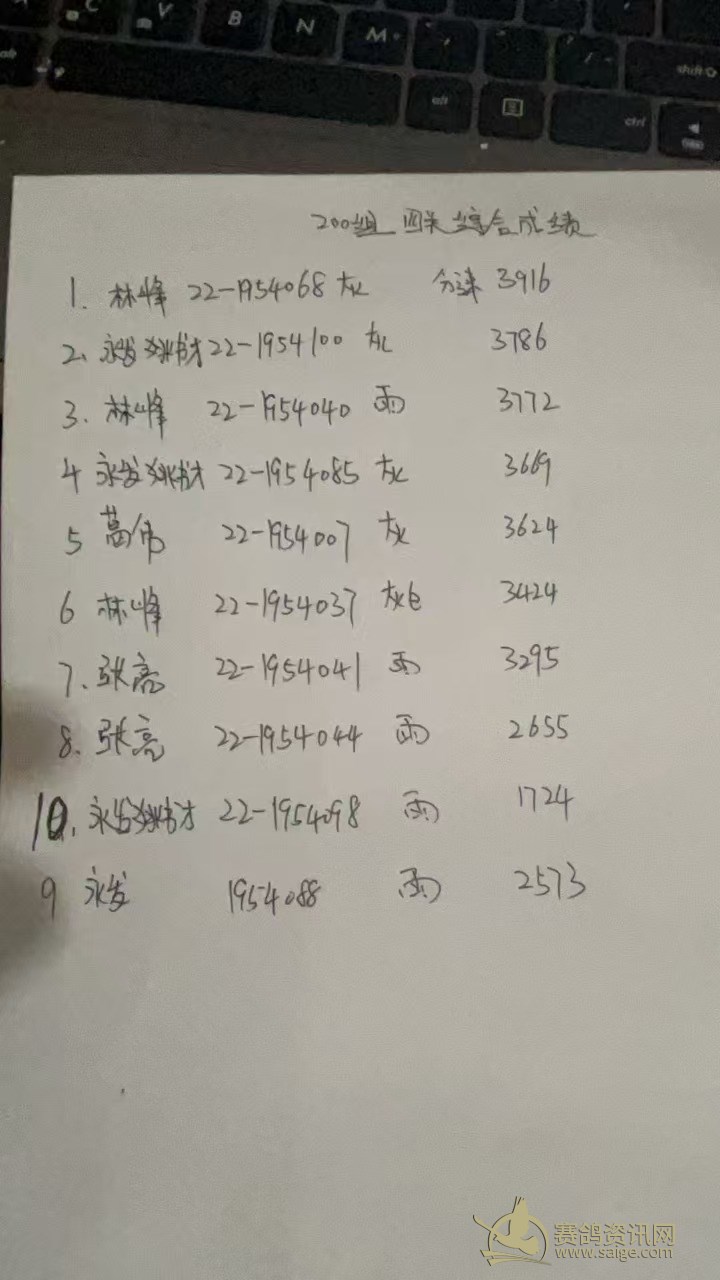 C V B N M
alt alt ctrl shift
200组 四关综合成绩
1. 林峰 22-1954068 灰 分速 3916
2. 永发姚书才 22-1954100 灰 3786
3. 林峰 22-1954040 雨 3772
4 永发姚书才 22-1954085 灰 3669
5 葛伟 22-1954007 灰 3624
6 林峰 22-1954037 灰白 3424
7. 张亮 22-1954041 雨 3295
8. 张亮 22-1954044 雨 2655
10. 永发姚书才 22-1954098 雨 1724
9 永发 1954088 雨 2573
赛鸽资讯网
www.saige.com